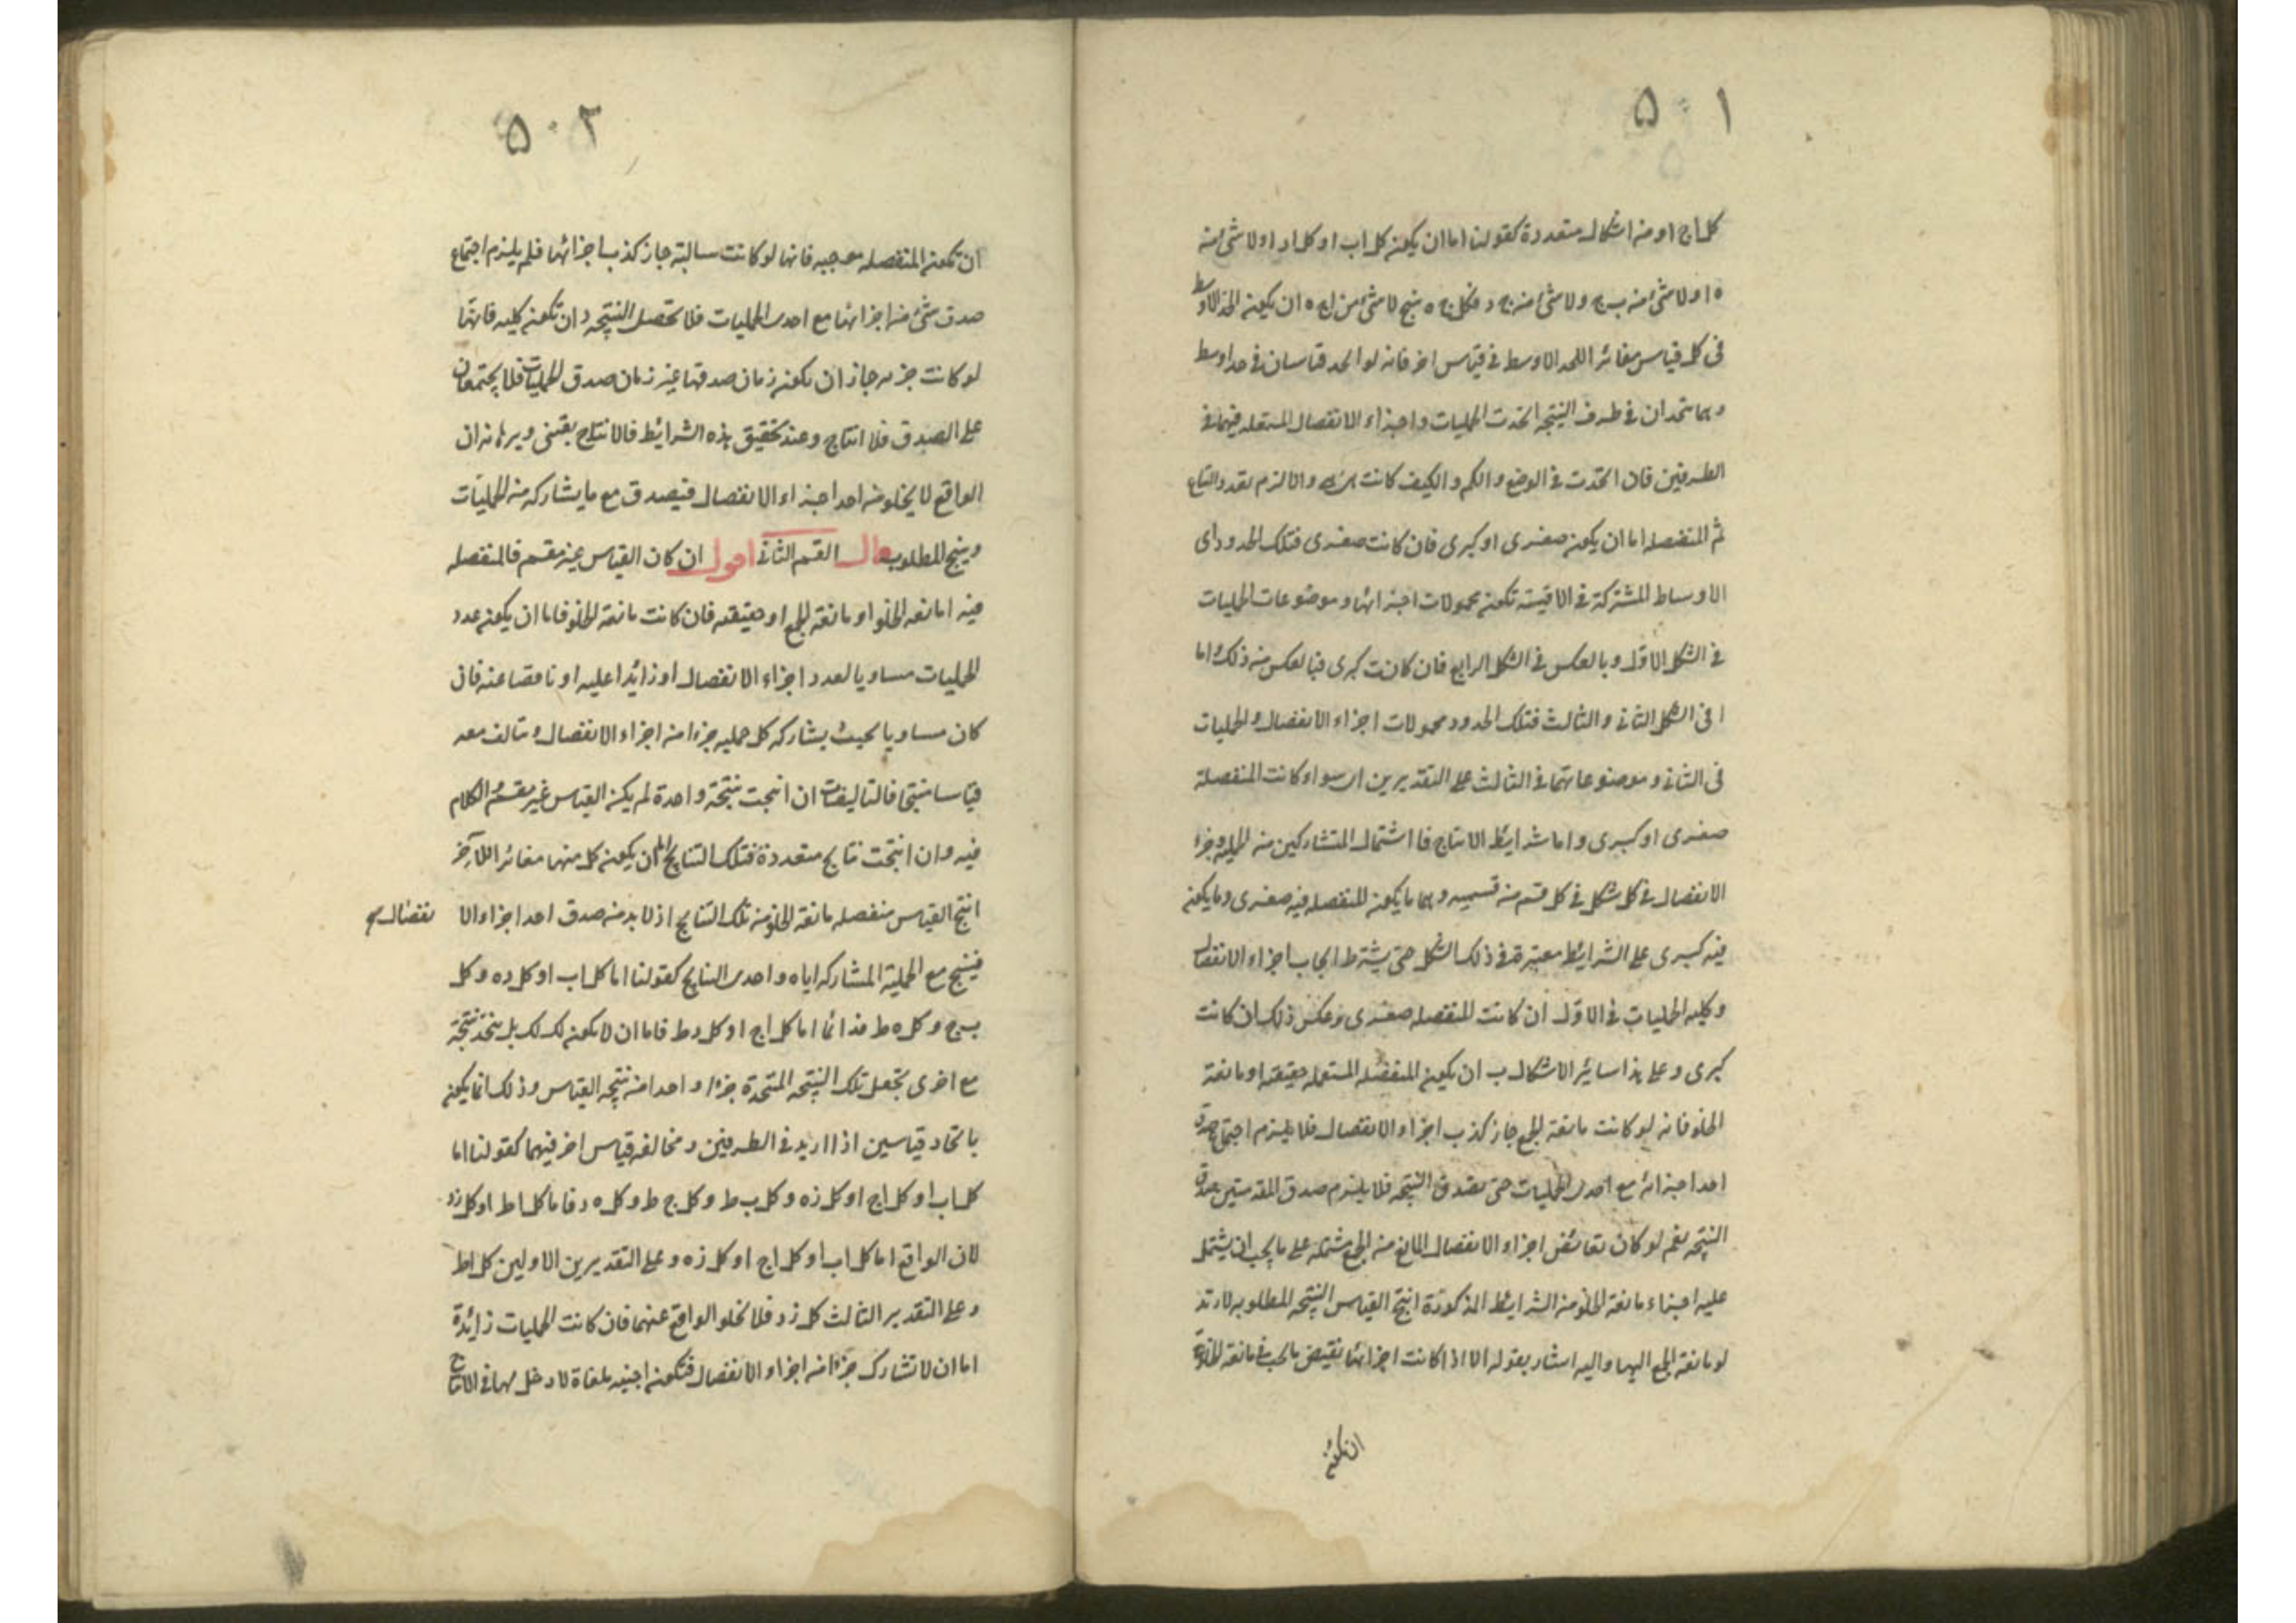 ۵۰۱
كل اج او من اشكال متعددة كقولنا اما ان يكون كل اب او كل اد او لا شئ من
ه ا و لا شئ من ب ج و لا شئ من ج د فكل ج ه ينتج لا شئ من اج ه ان يكون الحد الاوسط
فى كل قياس مغائر اللحد الاوسط فى قياس اخر فانه لو اتحد قياسان فى حد اوسط
وهما متحدان فى طرف النتيجه اتحدت الحمليات واجزاء الانفصال المستعمله فيهما فى
الطرفين فان اتحدت فى الوضع والكم والكيف كانت والا لزم تعدد النتايج
ثم المنفصله اما ان يكون صغرى او كبرى فان كانت صغرى فتلك الحدود اى
الاوساط المشتركة فى الاقيسة تكون محمولات اجزائها وموضوعات الحمليات
فى الشكل الاول وبالعكس فى الشكل الرابع فان كانت كبرى فبالعكس من ذلك واما
ا فى الشكل الثانى والثالث فتلك الحدود محمولات اجزاء الانفصال والحمليات
فى الثانى وموضوعاتهما فى الثالث على التقديرين اى سواء كانت المنفصلة
صغرى او كبرى واما شرايط الانتاج فا اشتمال المتشاركين من الحملية وجزء
الانفصال فى كل شكل فى كل قسم من قسميه وهما ما يكون المنفصله فيه صغرى وما يكون
فيه كبرى على الشرايط معتبرة فى ذلك الشكل حتى يشترط ايجاب اجزاء الانفصال
وكليه الحمليات فى الاول ان كانت المنفصله صغرى وعكس ذلك ان كانت
كبرى وعلى هذا سائر الاشكال ب ان يكون المنفصله المستعمله حقيقة او مانعة
الخلو فانه لو كانت مانعة الجمع جاز كذب اجزاء الانفصال فلا يلزم اجتماع صدق
احد اجزائه مع احدى الحمليات حتى يصدق النتيجه فلا يلزم صدق المقدمتين صدق
النتيجه نعم لو كان نقائض اجزاء الانفصال المانع من الجمع مشتمله على ما يجب ان يشتمل
عليه اجزاء مانعة الخلو من الشرايط المذكورة انتج القياس النتيجه المطلوبه لارتد
لو مانعة الجمع اليها واليه اشار بقوله الا اذا كانت اجزائها نقيض ما يجب فى مانعة الخلو
ان تكون
۵۰۲
ان تكون المنفصله موجبه فانها لو كانت سالبة جاز كذب اجزائها فلم يلزم اجتماع
صدق شئ من اجزائها مع احدى الحمليات فلا تحصل النتيجه د ان تكون كليه فانها
لو كانت جزيه جاز ان يكون زمان صدقها غير زمان صدق الحمليات فلا يجتمعان
على الصدق فلا انتاج وعند تحقيق هذه الشرايط فالانتاج يقينى وبرهانه ان
الواقع لا يخلو من احد اجزاء الانفصال فيصدق مع ما يشاركه من الحمليات
وينتج المطلوب قال القسم الثانى اقول ان كان القياس غير مقسم فالمنفصله
فيه اما مانعه الخلو او مانعة الجمع او حقيقيه فان كانت مانعة الخلو فاما ان يكون عدد
الحمليات مساويا لعدد اجزاء الانفصال او زائدا عليه او ناقصا عنه فان
كان مساويا بحيث يشاركه كل حمليه جزءا من اجزاء الانفصال وتتالف معه
قياسا منتجا فالتاليفات ان انتجت نتيجة واحدة لم يكن القياس غير مقسم والكلام
فيه وان انتجت نتايج متعددة فتلك النتايج اما ان يكون كل منهما مغائر اللآخر
انتج القياس منفصله مانعة الخلو من تلك النتايج اذ لا بد من صدق احد اجزاء الا نفصال
فينتج مع الحملية المشاركه اياه واحدى النتايج كقولنا اما كل اب او كل ده وكل
ب ج وكل ه ط فدائما اما كل اج او كل د ط فاما ان لا يكون لك لك بل يتخذ نتيجة
مع اخرى بجعل تلك النتيجه المتحدة جزءا واحدا من نتيجه القياس وذلك انما يكون
باتحاد قياسين اذ ااريد فى الطرفين ومخالفه قياس اخر فيهما كقولنا اما
كل اب او كل اج او كل زه وكل ب ط وكل ج ط وكل ه د فاما كل اط او كل زد
لان الواقع اما كل اب او كل اج او كل زه وعلى التقديرين الاولين كل اط
وعلى التقدير الثالث كل زد فلا يخلو الواقع عنهما فان كانت الحمليات زائدة
اما ان لا تشارك جزءا من اجزاء الانفصال فتكون اجنبيه ملقاة لا دخل لها فى الانتاج